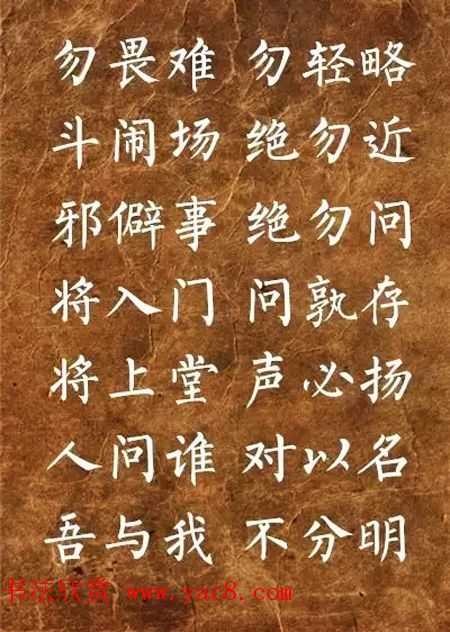 勿畏难 勿轻略
斗闹场 绝勿近
邪僻事 绝勿问
将入门 问孰存
将上堂 声必扬
人问谁 对以名
吾与我 不分明
书法欣赏 www.yac8.com